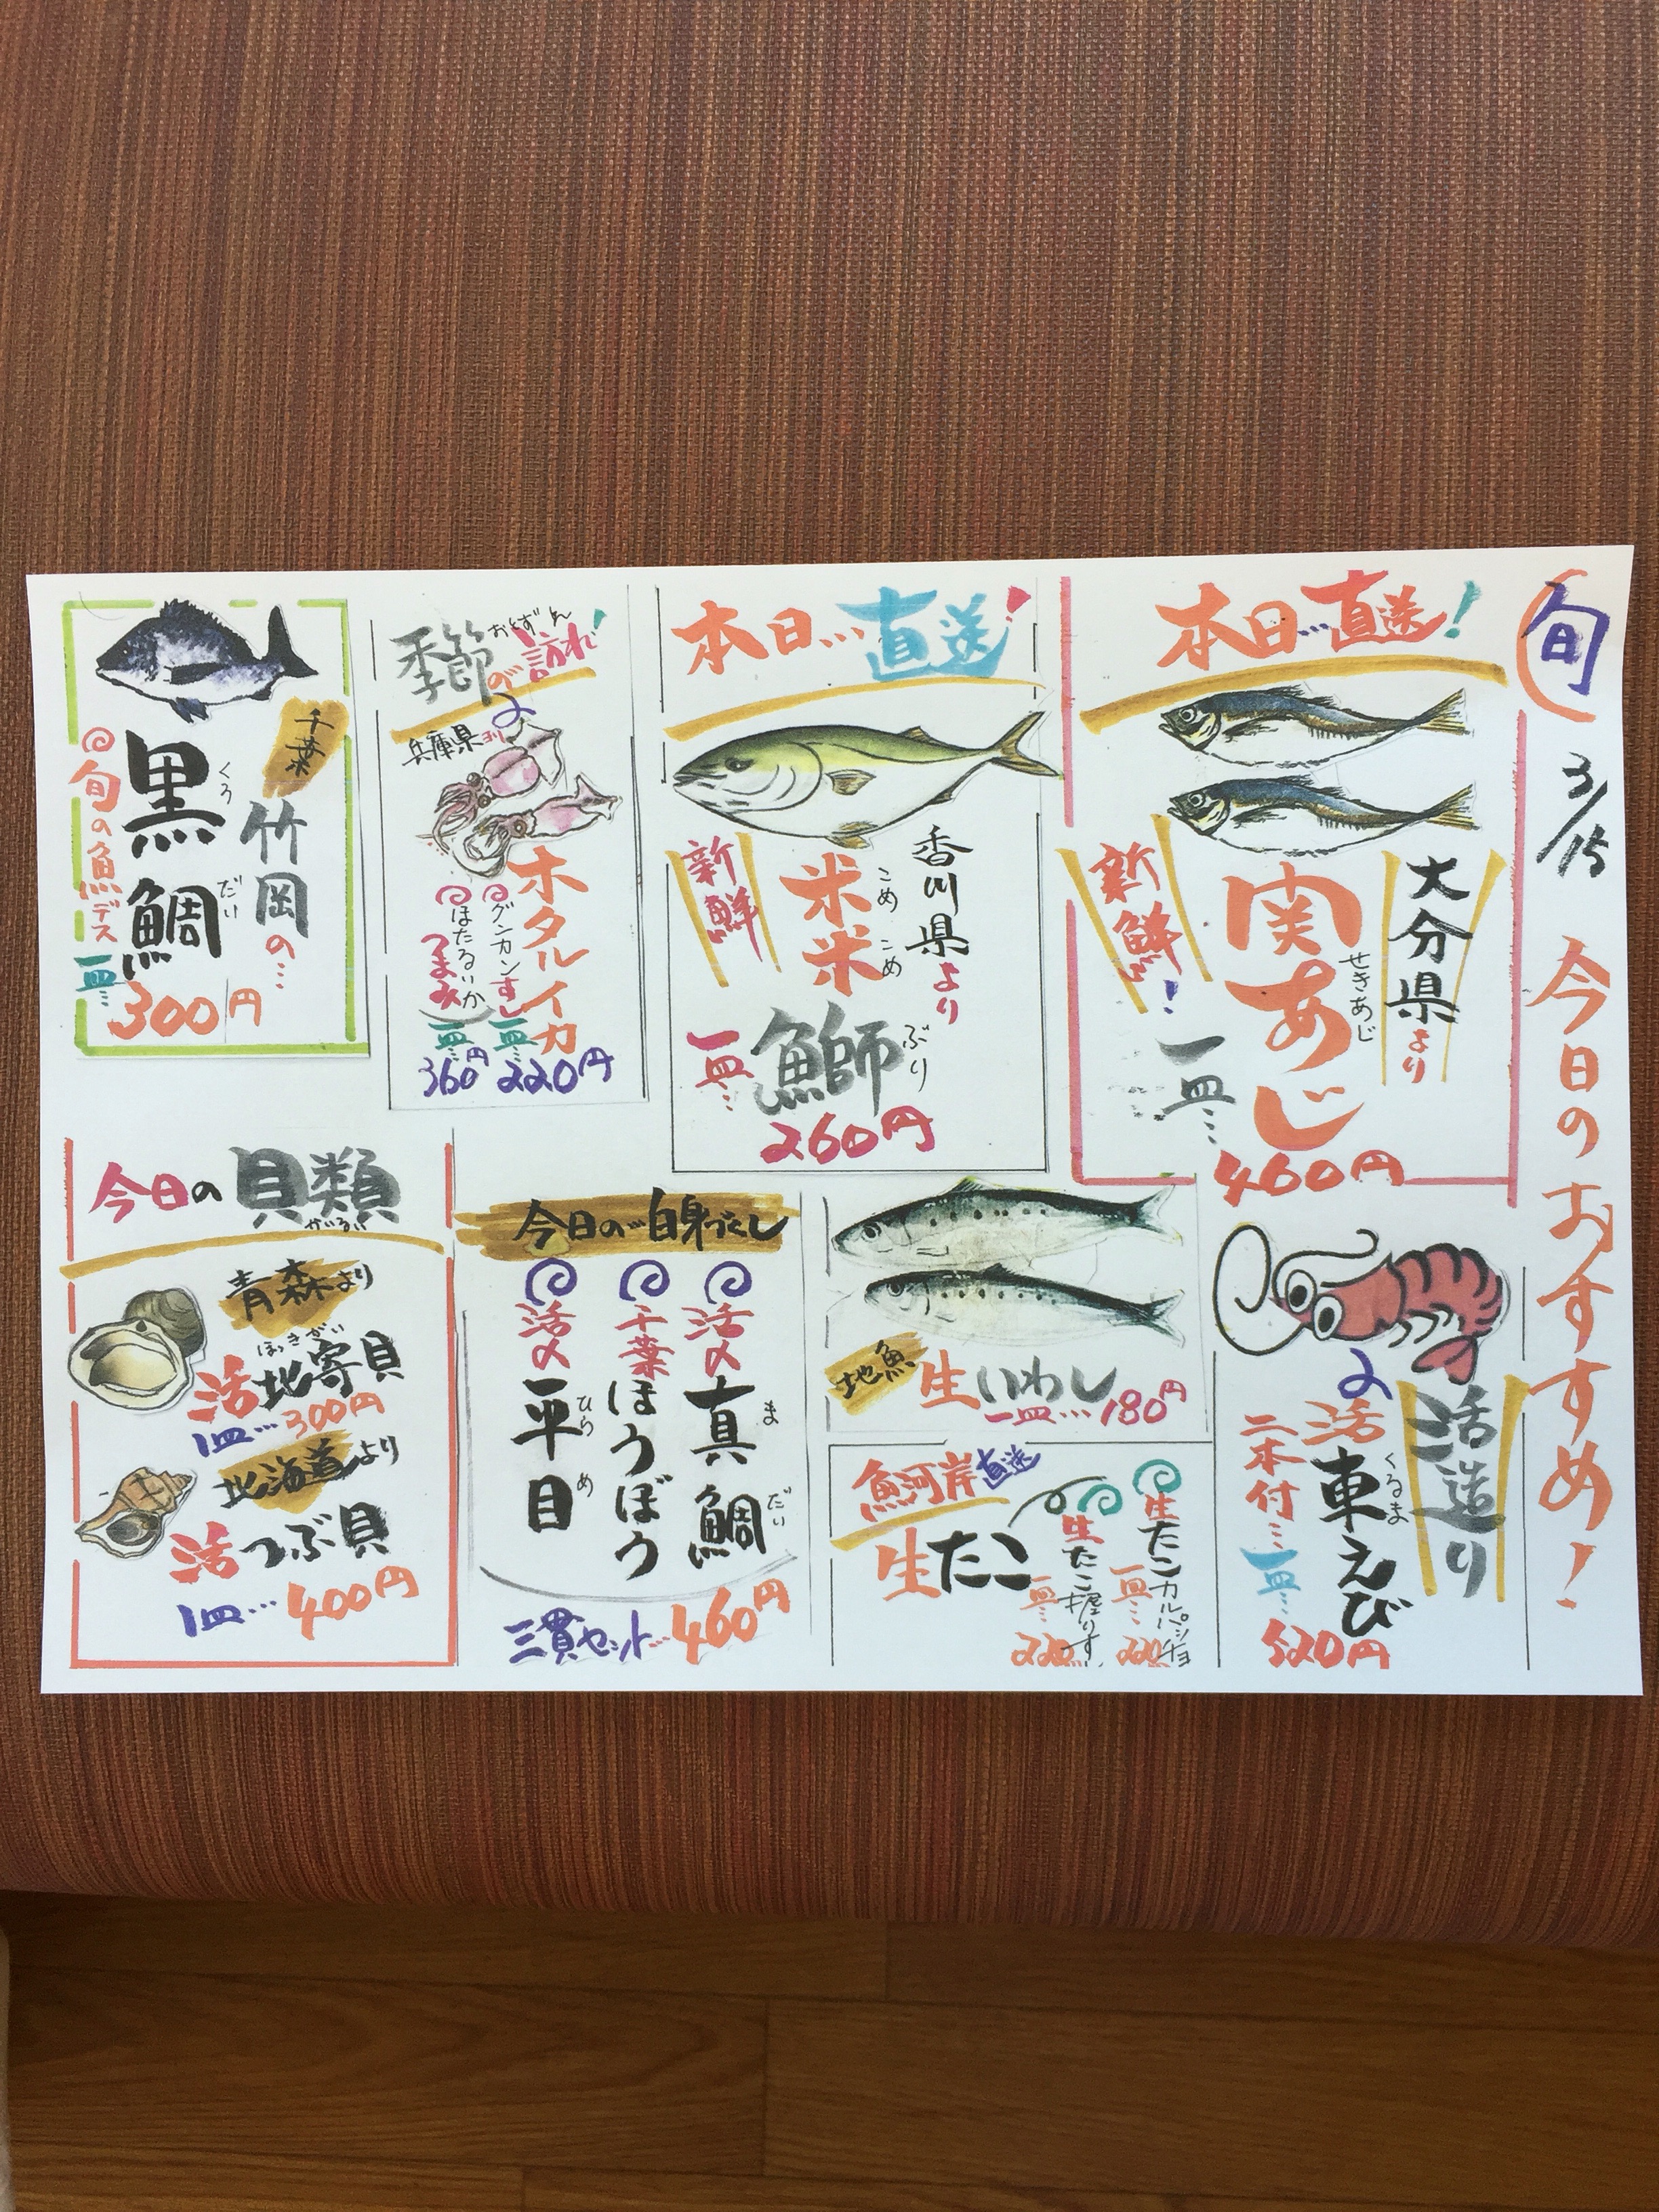 旬
3/15
今日のおすすめ!
本日…直送!
大分県より
関あじ
せきあじ
新鮮!
一皿…
460円
本日…直送!
香川県より
米米
こめ こめ
鰤
ぶり
新鮮
一皿…
260円
季節の訪れ!
おとずれ
兵庫県ヨリ
ホタルイカ
グンカンすし
一皿…
220円
ほたるいか
つまみ
一皿…
360円
千葉
竹岡の…
黒鯛
くろ だい
旬の魚デス
一皿…
300円
活造り
活車えび
くるま
二本付…
一皿…
520円
地魚
生いわし
一皿…180円
魚河岸直送
生たこ
生たこカルパッチョ
一皿…
220
生たこ握りす
一皿…
220
今日の…白身づくし
活〆真鯛
ま だい
千葉ほうぼう
活〆平目
ひら め
三貫セット…460円
今日の貝類
かいるい
青森より
活北寄貝
ほっきがい
1皿…300円
北海道より
活つぶ貝
1皿…400円